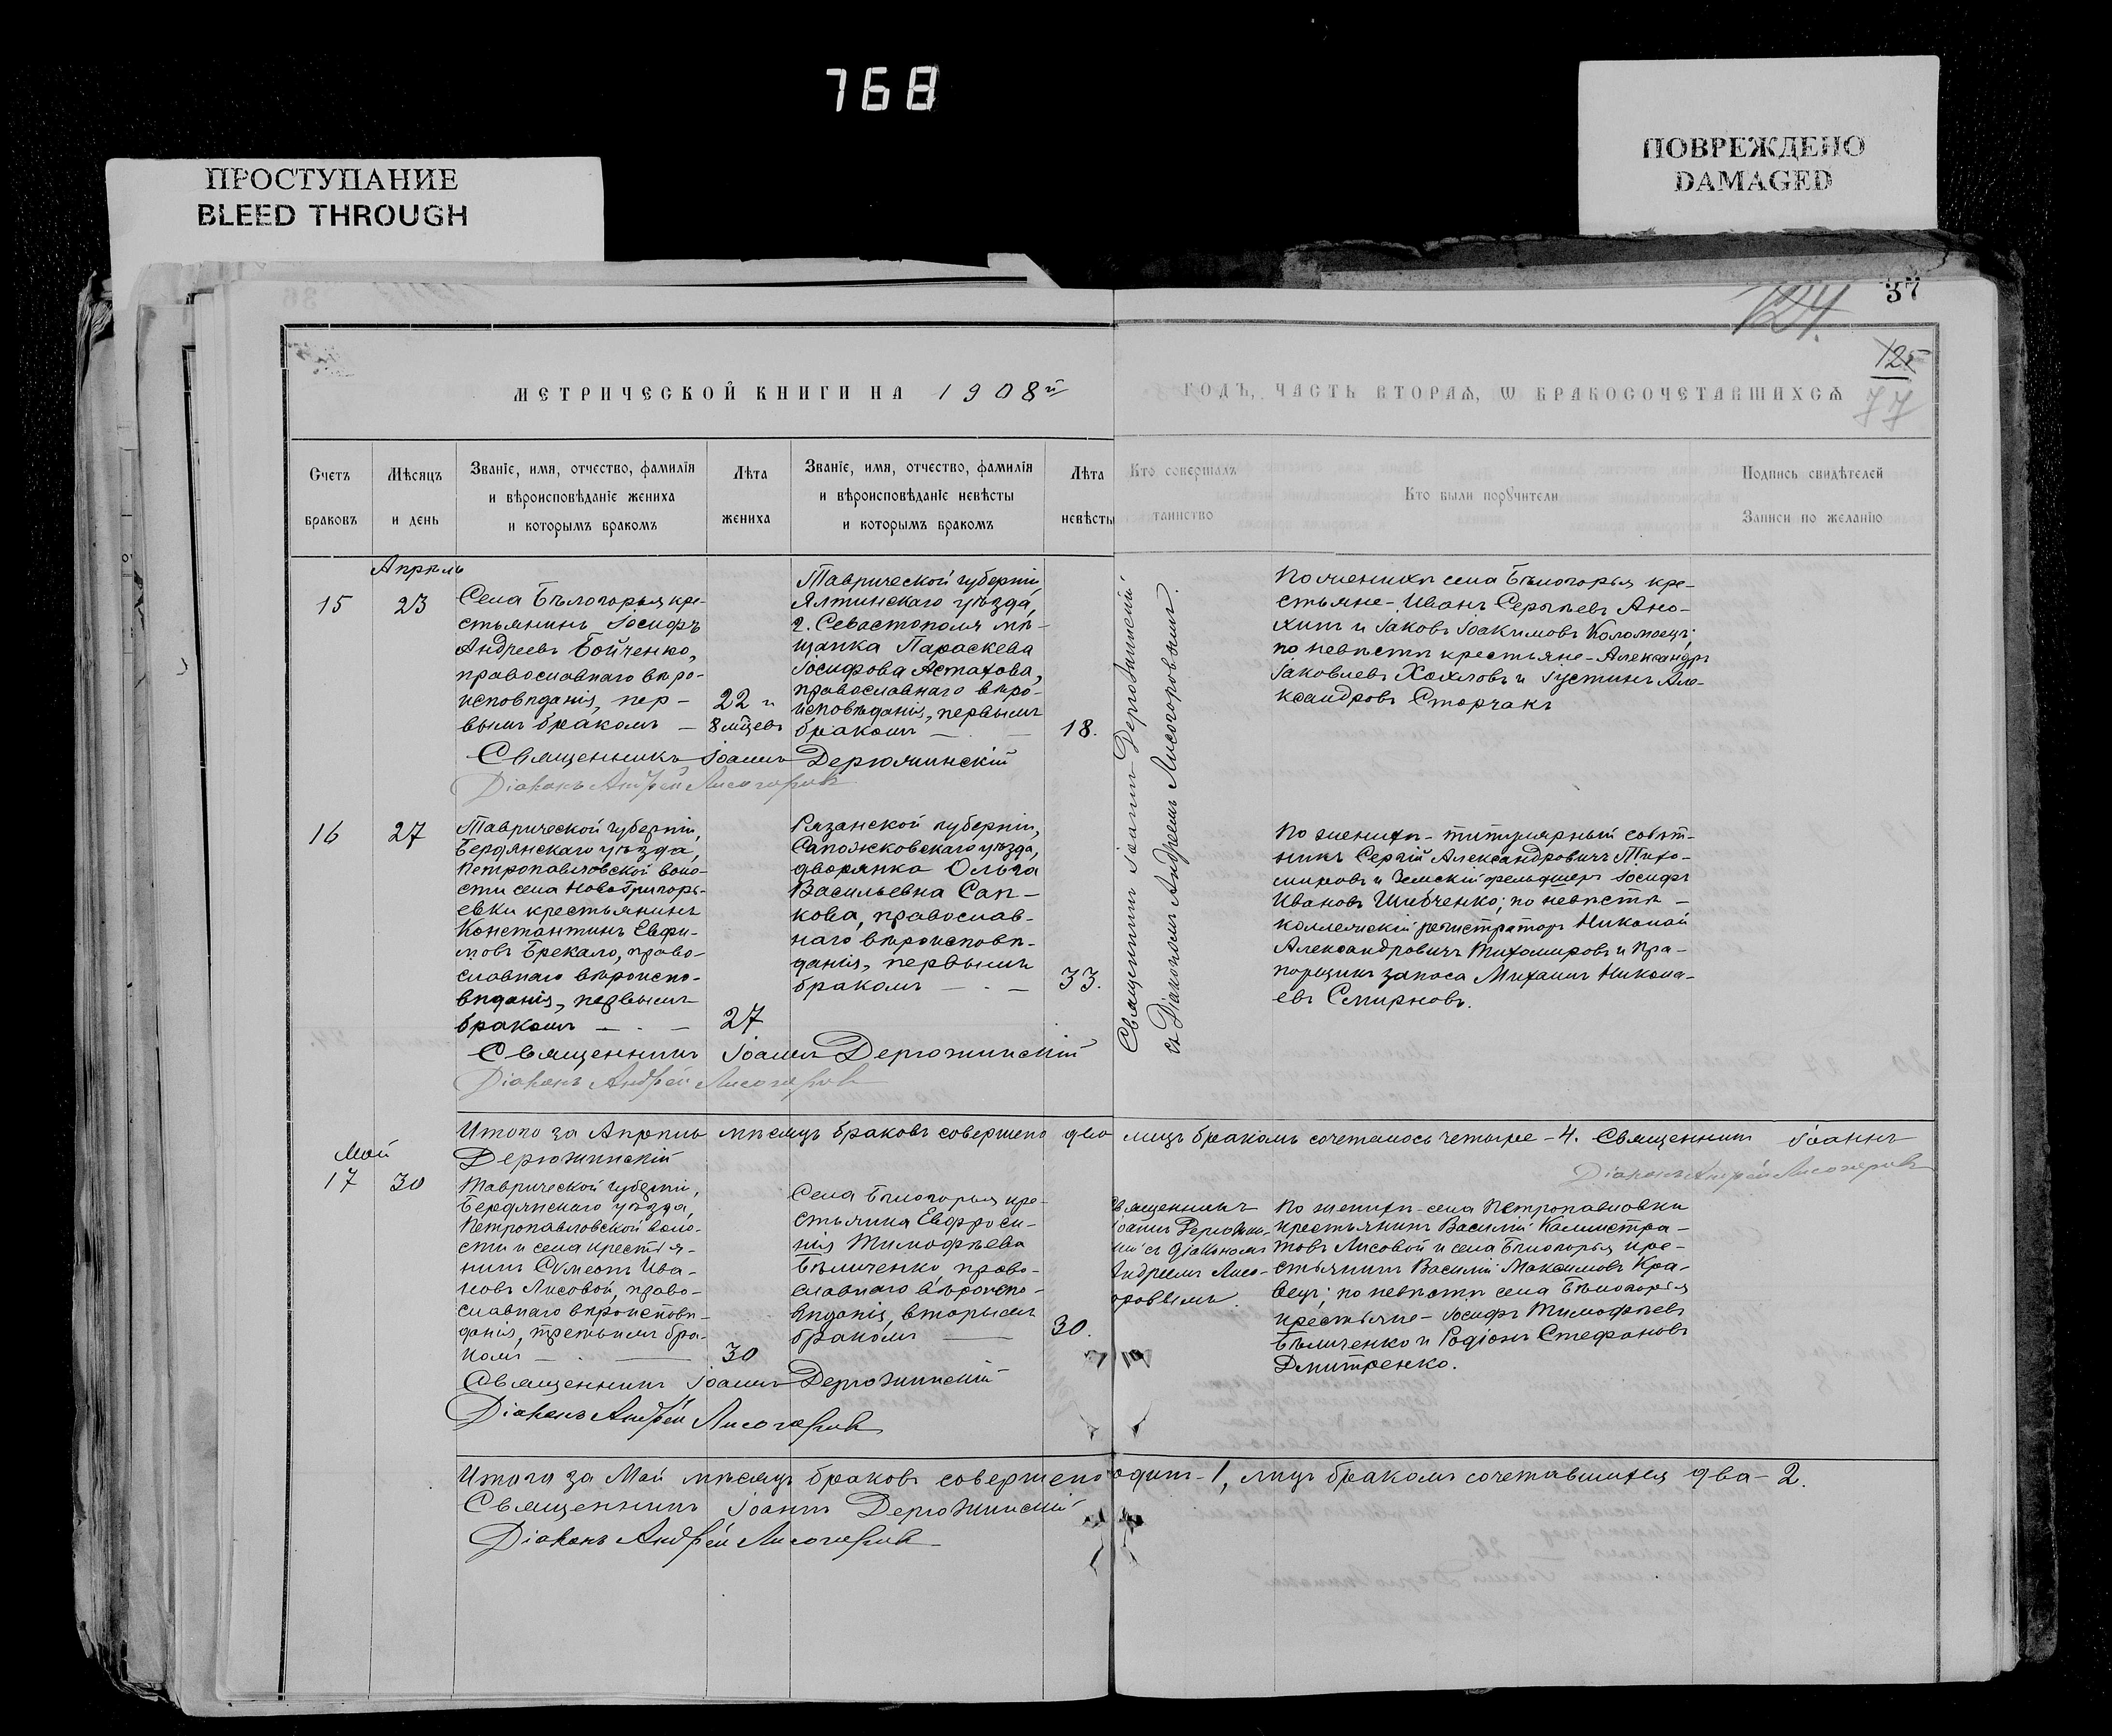 768
ПРОСТУПАНИЕ
BLEED THROUGH
ПОВРЕЖДЕНО
DAMAGED
37
124.
125
77
МЕТРИЧЕСКОЙ КНИГИ НА 1908й
ГОДЪ, ЧАСТЬ ВТОРАѦ, Ѡ БРАКОСОЧЕТАВШИХСѦ
Счетъ
браковъ
Мѣсяцъ
и день
Званіе, имя, отчество, фамилія
и вѣроисповѣданіе жениха
и которымъ бракомъ
Лѣта
жениха
Званіе, имя, отчество, фамилія
и вѣроисповѣданіе невѣсты
и которымъ бракомъ
Лѣта
невѣсты
Кто совершалъ
таинство
Кто были порꙋчители
Подпись свидѣтелей
Записи по желанію
Апрѣль
15
23
Села Бѣлогорья кре-
стьянинъ Іосифъ
Андреевъ Бойченко,
православнаго вѣро-
исповѣданія, пер-
вымъ бракомъ —
22 и
8 мцевъ
Таврической губерніи,
Ялтинскаго уѣзда,
г. Севастополя мѣ-
щанка Параскева
Іосифова Астахова,
православнаго вѣро-
исповѣданія, первымъ
бракомъ —
18.
Священникъ Іоаннъ Дерюжинскій
съ Діакономъ Андреемъ Лисогоровымъ.
По женихѣ села Бѣлогорья кре-
стьяне - Иванъ Сергѣевъ Ано-
хин и Іаковъ Іоакимовъ Коломоецъ;
по невѣстѣ крестьяне - Александръ
Іаковлевъ Хохловъ и Іустинъ Але-
ксандровъ Сторчакъ
Священникъ Іоаннъ Дерюжинскій
Діаконъ Андрей Лисогоровъ
16
27
Таврической губерніи,
Бердянскаго уѣзда,
Петропавловской воло-
сти села Новогригорь-
евки крестьянинъ
Константинъ Евфи-
мовъ Брекало, право-
славнаго вѣроиспо-
вѣданія, первымъ
бракомъ —
27
Рязанской губерніи,
Сапожковскаго уѣзда,
дворянка Ольга
Васильевна Сап-
кова, православ-
наго вѣроисповѣ-
данія, первымъ
бракомъ —
33.
По женихѣ - титулярный совѣт-
никъ Сергій Александровичъ Тихо-
мировъ и Земскій фельдшеръ Іосифъ
Ивановъ Шевченко; по невѣстѣ -
коллежскій регистраторъ Николай
Александровичъ Тихомировъ и пра-
порщикъ запаса Михаилъ Никола-
евъ Смирновъ.
Священникъ Іоаннъ Дерюжинскій
Діаконъ Андрей Лисогоровъ
Итого за Апрѣль мѣсяцъ браковъ совершено два лицъ бракомъ сочеталось четыре - 4. Священникъ Іоаннъ
Дерюжинскій
Діаконъ Андрей Лисогоровъ
Май
17
30
Таврической губерніи,
Бердянскаго уѣзда,
Петропавловской воло-
сти и села крестья-
нинъ Симеонъ Ива-
новъ Лисовой, право-
славнаго вѣроисповѣ-
данія, третьимъ бра-
комъ —
30
Села Бѣлогорья кре-
стьянка Евфроси-
нія Тимофѣева
Бѣличенко право-
славнаго вѣроиспо-
вѣданія, вторымъ
бракомъ —
30.
Священникъ
Іоаннъ Дерюжин-
кій съ діакономъ
Андреемъ Лисо-
оровымъ.
По женихѣ - села Петропавловки
крестьянинъ Василій Каллистра-
товъ Лисовой и села Бѣлогорья кре-
стьянинъ Василій Максимовъ Кра-
вецъ; по невѣстѣ села Бѣлогорья
крестьяне - Іосифъ Тимофѣевъ
Бѣличенко и Родіонъ Стефановъ
Дмитренко.
Священникъ Іоаннъ Дерюжинскій
Діаконъ Андрей Лисогоровъ
Итого за Май мѣсяцъ браковъ совершено одинъ - 1, лицъ бракомъ сочетавшихся два - 2.
Священникъ Іоаннъ Дерюжинскій
Діаконъ Андрей Лисогоровъ